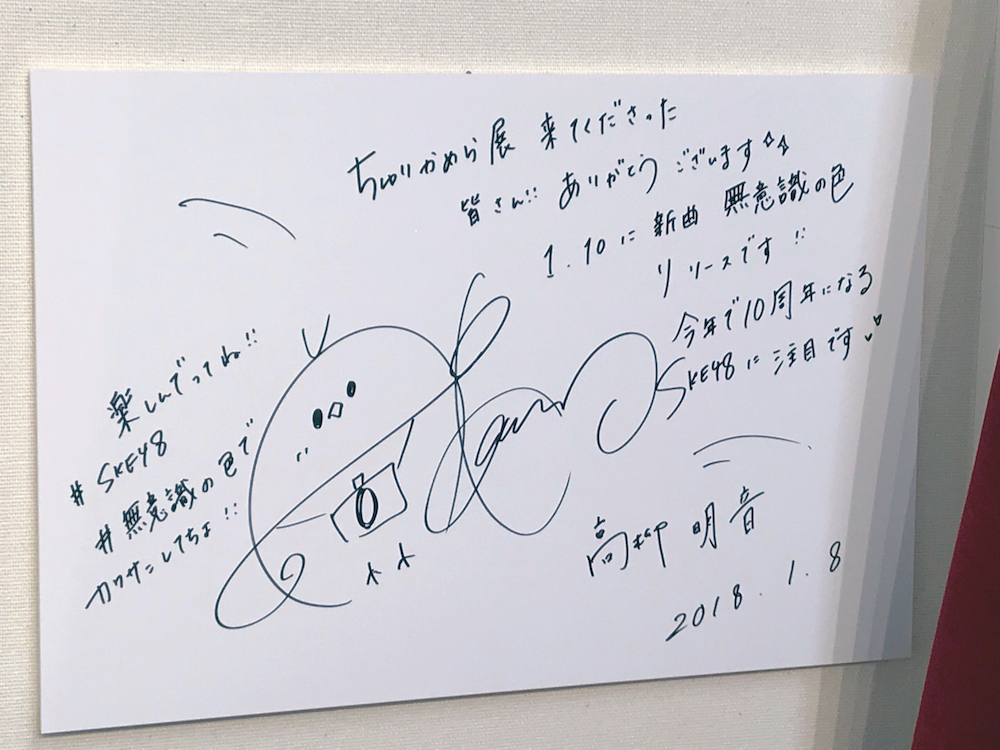 ちゅりかめら展 来てくださった
皆さん!! ありがとう ございます
1.10に 新曲 無意識の色
リリースです!!
今年で10周年になる
SKE48に 注目です
楽しんでってね!!
#SKE48
#無意識の色で
カクサンしてちょ!!
高柳 明音
2018.1.8